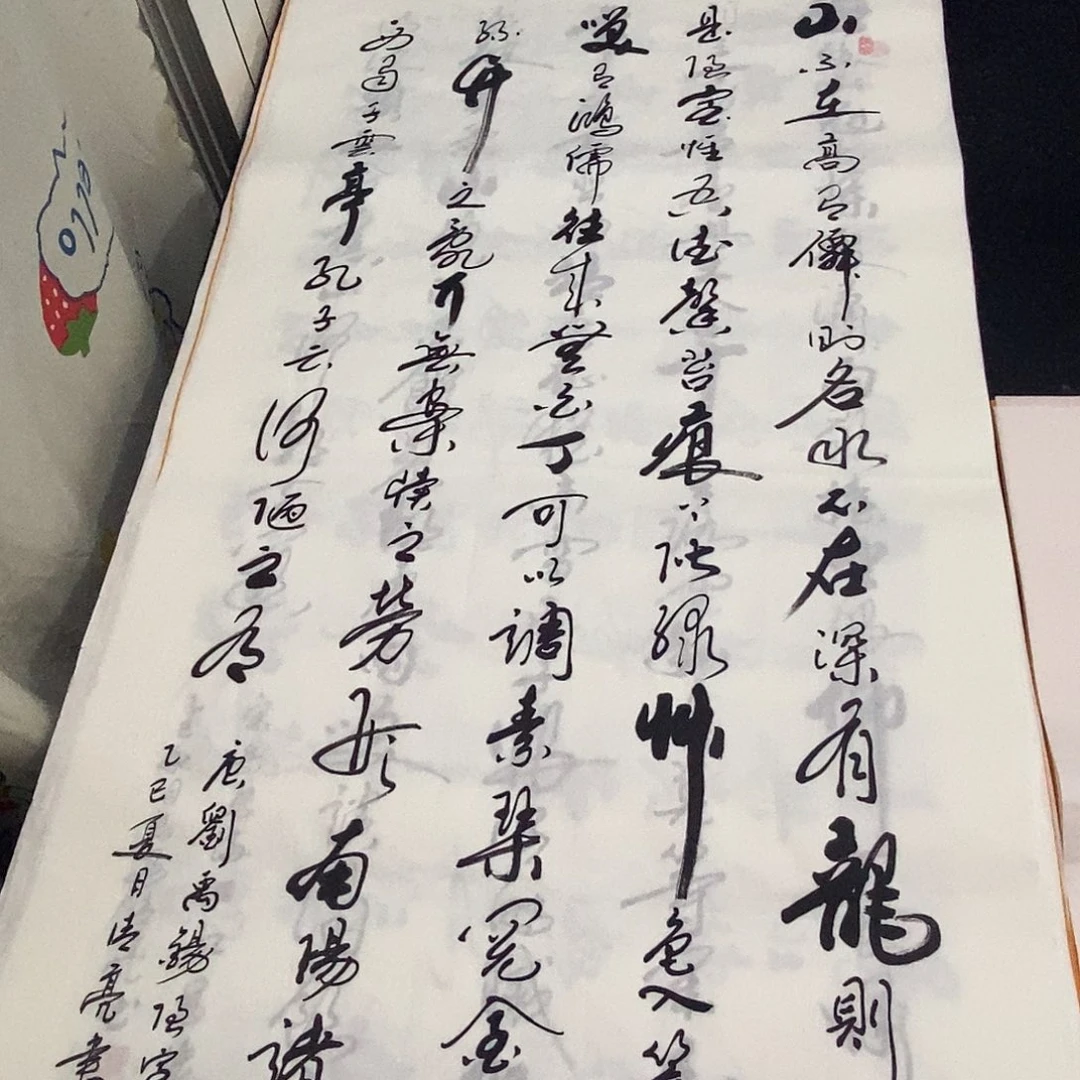 山不在高有僊則名水不在深有龍則
是陋室惟吾德馨苔痕上階綠艸色入
笑有鴻儒往來無白丁可以調素琴閱金
絲竹之亂耳無案牘之勞形南陽諸
西蜀子雲亭孔子云何陋之有
唐劉禹錫陋室
乙巳夏月清亮書